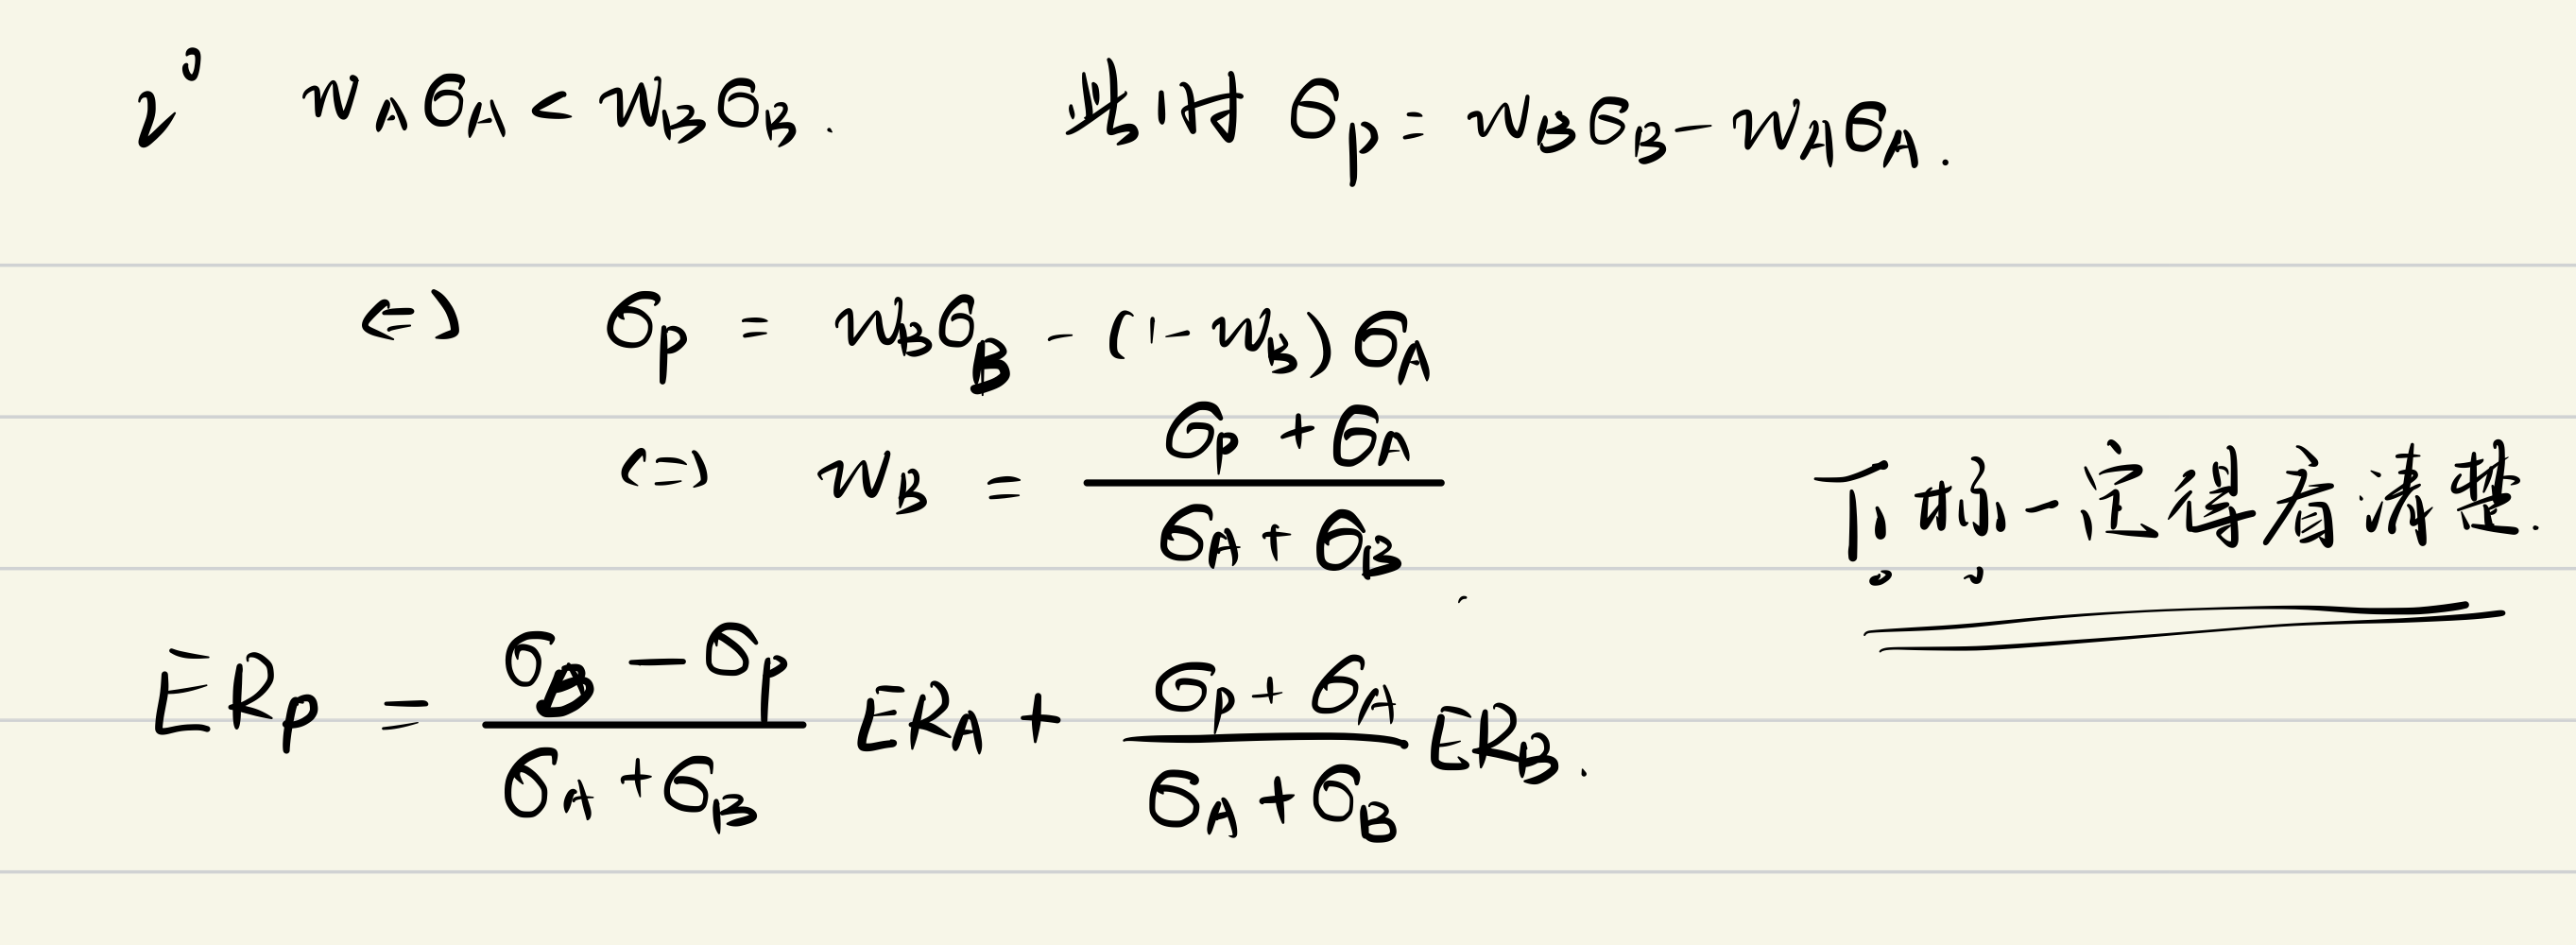 2° w_A σ_A < w_B σ_B. 此时 σ_p = w_B σ_B - w_A σ_A.
<=> σ_p = w_B σ_B - (1 - w_B) σ_A
<=> w_B = (σ_p + σ_A) / (σ_A + σ_B)
下标一定得看清楚.
ER_p = (σ_B - σ_p) / (σ_A + σ_B) ER_A + (σ_p + σ_A) / (σ_A + σ_B) ER_B.